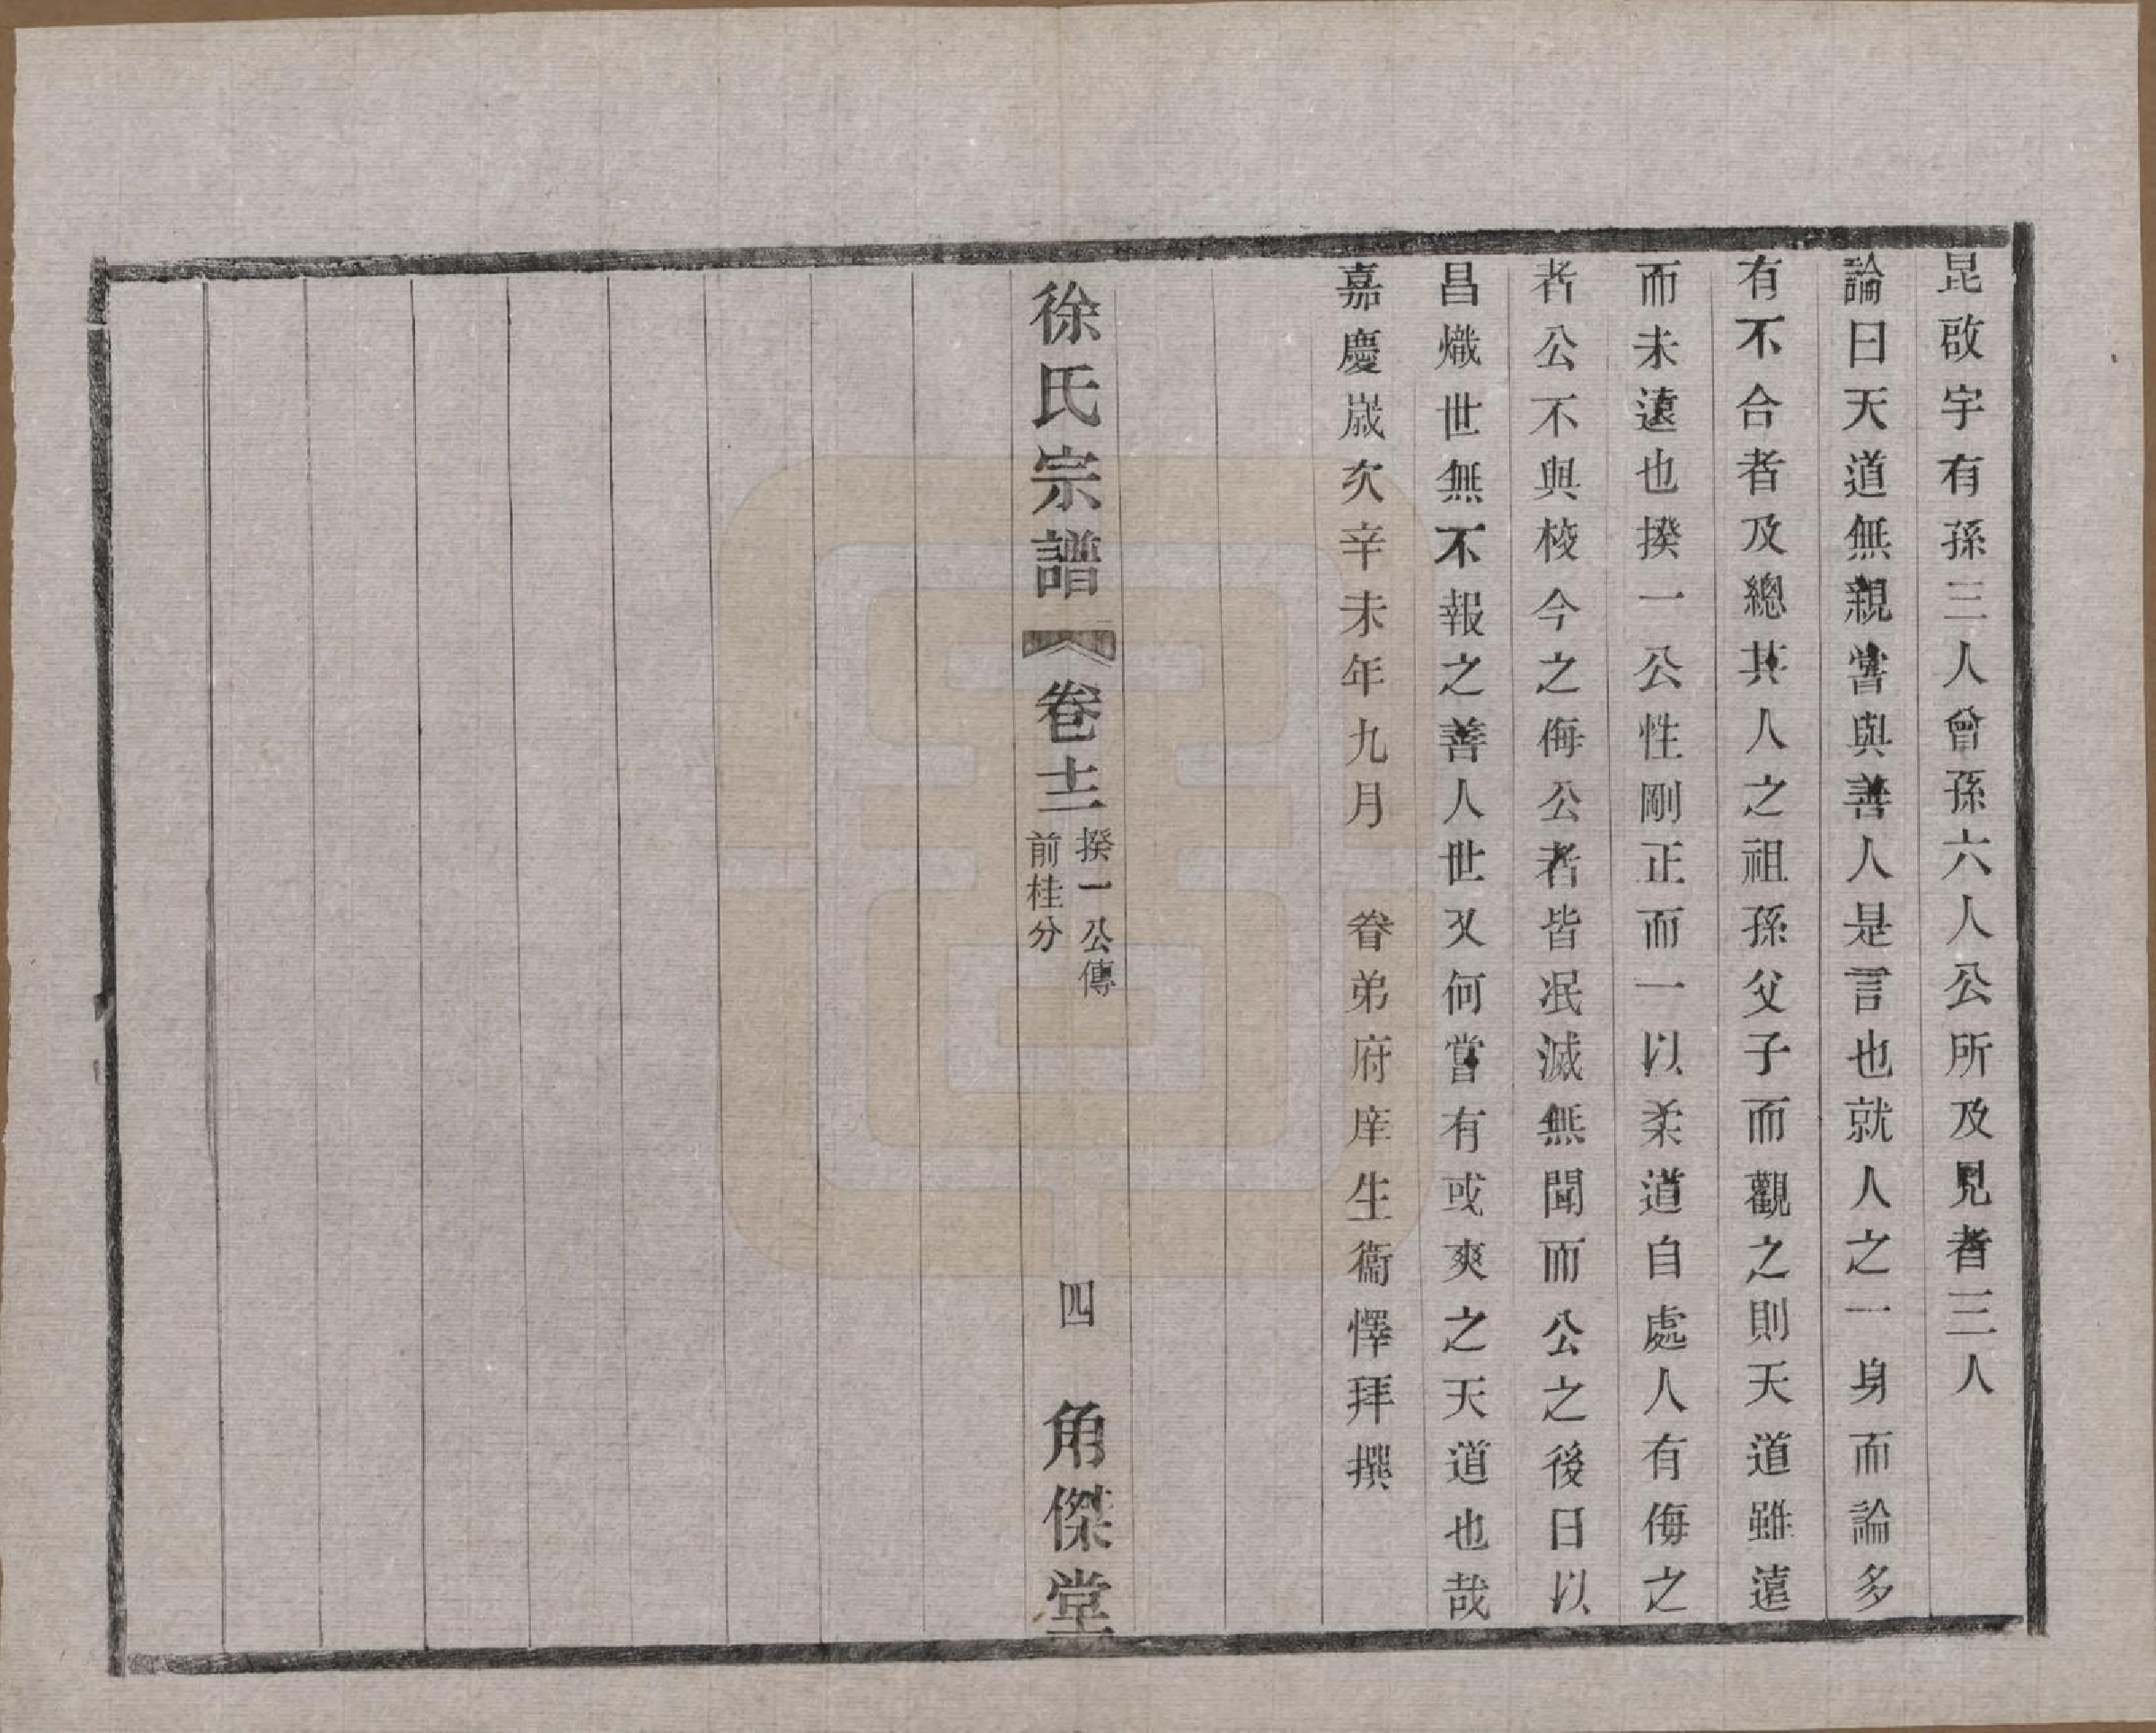 昆啟宇有孫三人曾孫六人公所及見者三人
論曰天道無親嘗與善人是言也就人之一身而論多
有不合者及總其人之祖孫父子而觀之則天道雖遠
而未遠也揆一公性剛正而一以柔道自處人有侮之
者公不與校今之侮公者皆泯滅無聞而公之後日以
昌熾世無不報之善人世又何嘗有或爽之天道也哉
嘉慶嵗次辛未年九月　眷弟府庠生衞懌拜撰
徐氏宗譜　卷十二　揆一公傳　前桂分　四　角傑堂